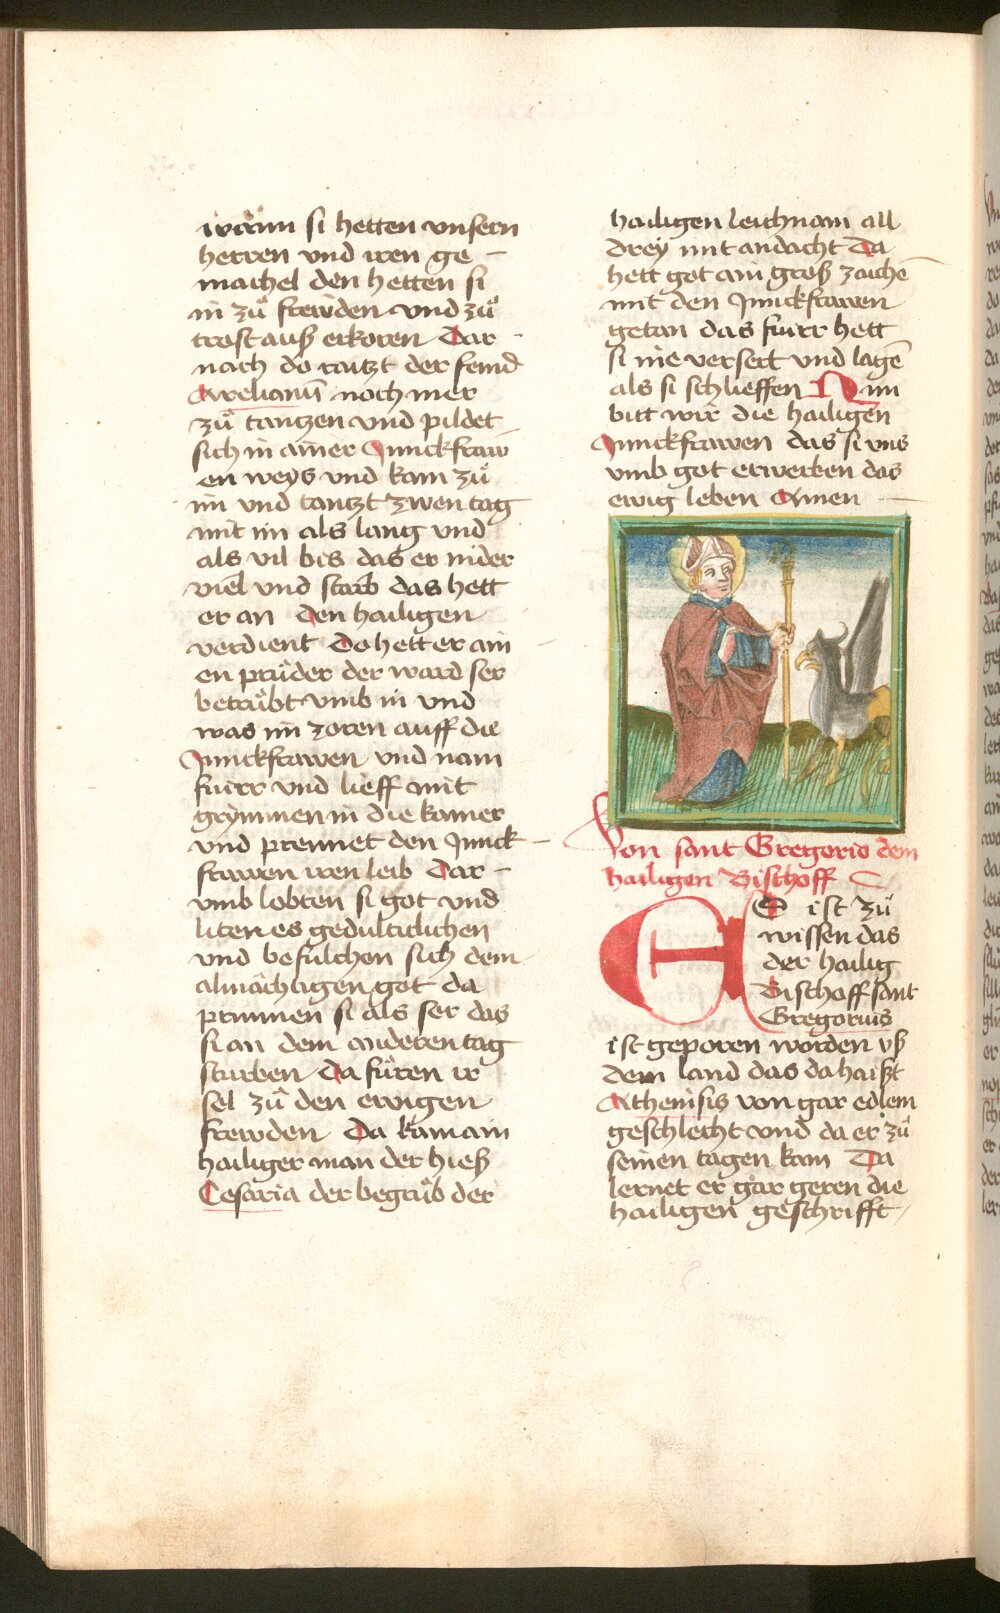 wann si hetten vnsern
herren vnd iren ge
machel den hetten si
in zů frewden vnd zů
trost auß erkoren Dar
nach do raitzt der feind
Arelianū noch mer
zů tantzen vnd pildet
sich in ainer Junckfraw
en weys vnd kam zů
im vnd tantzt zwen tag
mit im als lang vnd
als vil bis das er nider
viel vnd starb das hett
er an den hailigen
verdient Do hett er ain
en průder der ward ser
betrůbt vmb in vnd
was im zoren auff die
Junckfrawen vnd nam
fuirr vnd lieff mit
grymmen in die kamer
vnd prennet den Junck
frawen iren leib Dar
vmb lobten si got vnd
liten es gedulticlichen
vnd befulchen sich dem
almåchtigen got da
prunnen si als ser das
si an dem anderen tag
sturben Da fůren ir
sel zů den ewigen
frewden Da kam ain
hailiger man der hieß
Cesaria der begrůb der
hailigen leichnam all
drey mit andacht Da
hett got ain groß zaichē
mit den Junckfrawen
getan das fuirr hett
si nie versert vnd lagē
als si schlieffen Nun
bitt wir die hailigen
Junckfrawen das si vns
vmb got erwerben das
ewig leben Amen
Von sant Gregorio dem
hailigen Bischoff
ES ist zů
wissen das
der hailig
Bischoff sant
Gregorius
ist geporen worden vß
dem land das da haißt
Athenisis von gar edlem
geschlecht vnd da er zů
seinen tagen kam Da
lernet er gar geren die
hailigen geschrifft